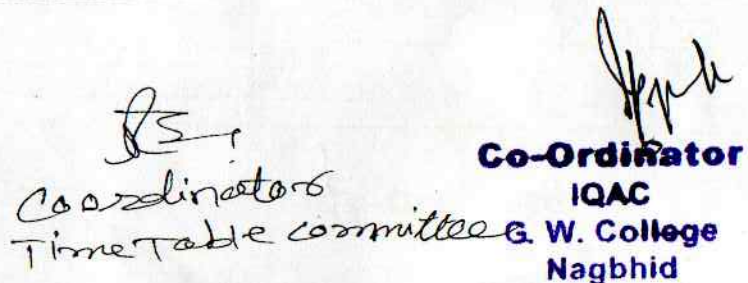 Coordinator
Time Table committee
Co-Ordinator
IQAC
G. W. College
Nagbhid